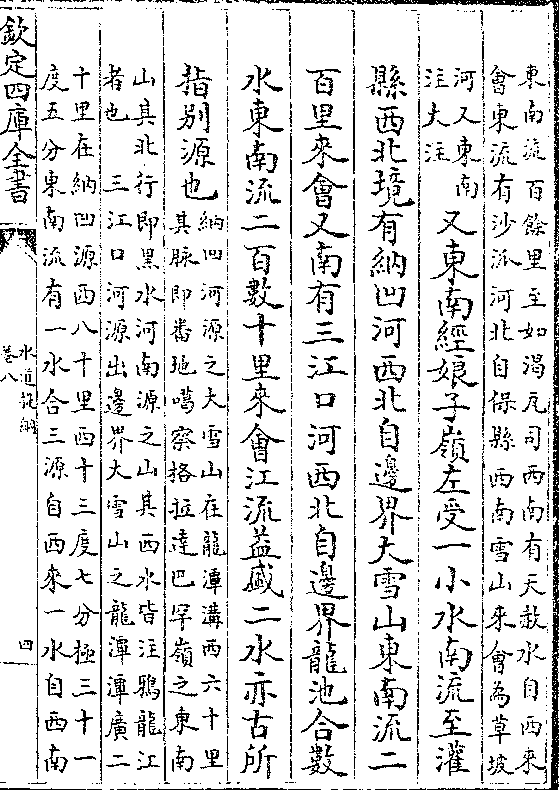 東南流百餘里至如渴瓦司西南有天赦水自西來
會東流有沙派河北自保縣西南雪山來會為草坡
河又東南
注大注
又東南經娘子嶺左受一小水南流至灌
縣西北境有納凹河西北自邊界大雪山東南流二
百里來會又南有三江口河西北自邊界龍池合數
水東南流二百數十里來會江流益盛二水亦古所
指别源也
納凹河源之大雪山在龍潭溝西六十里
其脉即番地噶察格拉達巴罕嶺之東南
山其北行即黑水河南源之山其西水皆注鴉龍江
者也 三江口河源出邊界大雪山之龍潭潭廣二
十里在納凹源西八十里西十三度七分極三十一
度五分東南流有一水合三源自西來一水自西南
欽定四庫全書
水道提綱
卷八
四